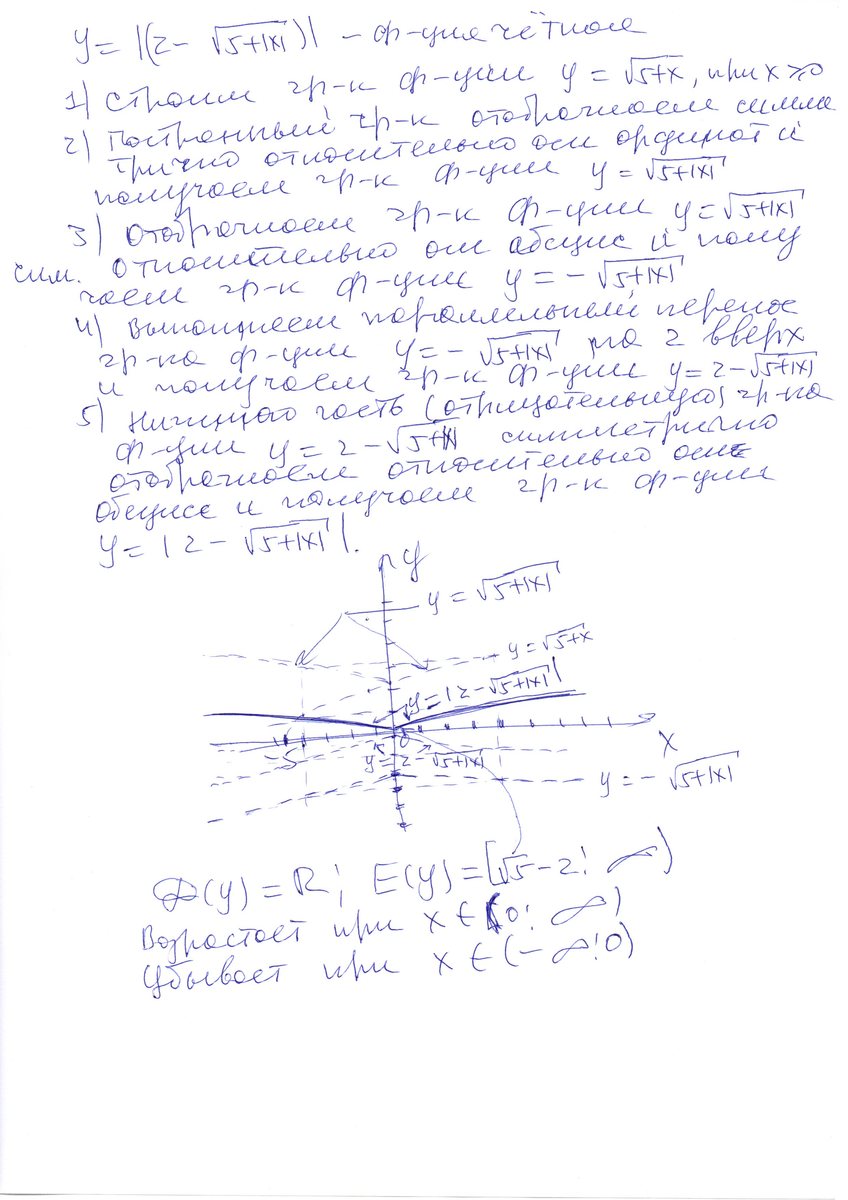 y = |(2 - √5+|x|)| - ф-ция чётная
1) Строим гр-к ф-ции y = √5+x, при x ≥ 0
2) Построенный гр-к отображаем симме
трично относительно оси ординат и
получаем гр-к ф-ции y = √5+|x|
3) Отображаем гр-к ф-ции y = √5+|x|
сим. относительно оси абсцис и полу
чаем гр-к ф-ции y = - √5+|x|
4) Выполняем параллельный перенос
гр-ка ф-ции y = - √5+|x| на 2 вверх
и получаем гр-к ф-ции y = 2 - √5+|x|
5) Нижнюю часть (отрицательную) гр-ка
ф-ции y = 2 - √5+|x| симметрично
отображаем относительно оси
абцисс и получаем гр-к ф-ции
y = | 2 - √5+|x| |.
y
y = √5+|x|
y = √5+x
y = | 2 - √5+|x| |
-5
0
x
y = 2 - √5+|x|
y = - √5+|x|
D(y) = R; E(y) = [√5 - 2; ∞)
Возрастает при x ∈ (0; ∞)
Убывает при x ∈ (-∞; 0)